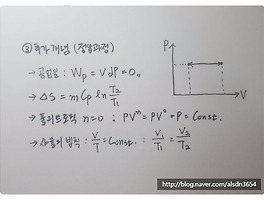 ③ 추가개념 (정압과정)
→ 공업일 : Wp = VdP = 0 〃
→ ΔS = mCp ln T₂/T₁
→ 폴리트로픽 n=0 : PVⁿ = PV⁰ = P = Const.
→ 샤를의 법칙 : V/T = Const. : V₁/T₁ = V₂/T₂
P
V
http://blog.naver.com/alsdn3654